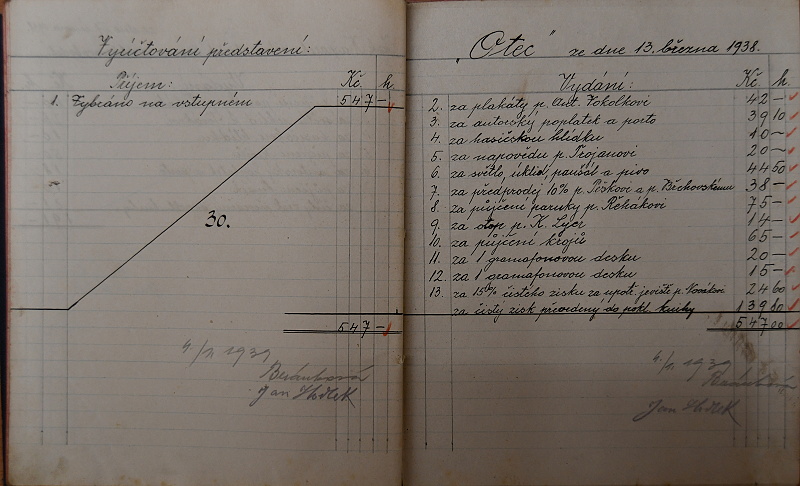 Vyúčtování představení:
Příjem: Kč. h.
1. Vybráno na vstupném 547 –
30.
547 –
4/II 1939
Jan
„Otec" ze dne 13. března 1938.
Vydání: Kč. h.
2. za plakáty p. Ant. Vokolkovi 42 –
3. za autorský poplatek a porto 39 10
4. za hasičskou hlídku 10 –
5. za nápovědu p. Trojanovi 20 –
6. za světlo, úklid, paušál a pivo 44 50
7. za předprodej 10% p. Peškovi a p. Břehovskému 38 –
8. za půjčení paruky p. Řehákovi 75 –
9. za p. K. Lyer 14 –
10. za půjčení krojů 65 –
11. za 1 gramafonovou desku 20 –
12. za 1 gramafonovou desku 15 –
13. za 15% čistého zisku za upotř. jeviště p. Novákovi 24 60
za čistý zisk převedený do pokl. knihy 139 80
547 00
4/II 1939
Jan